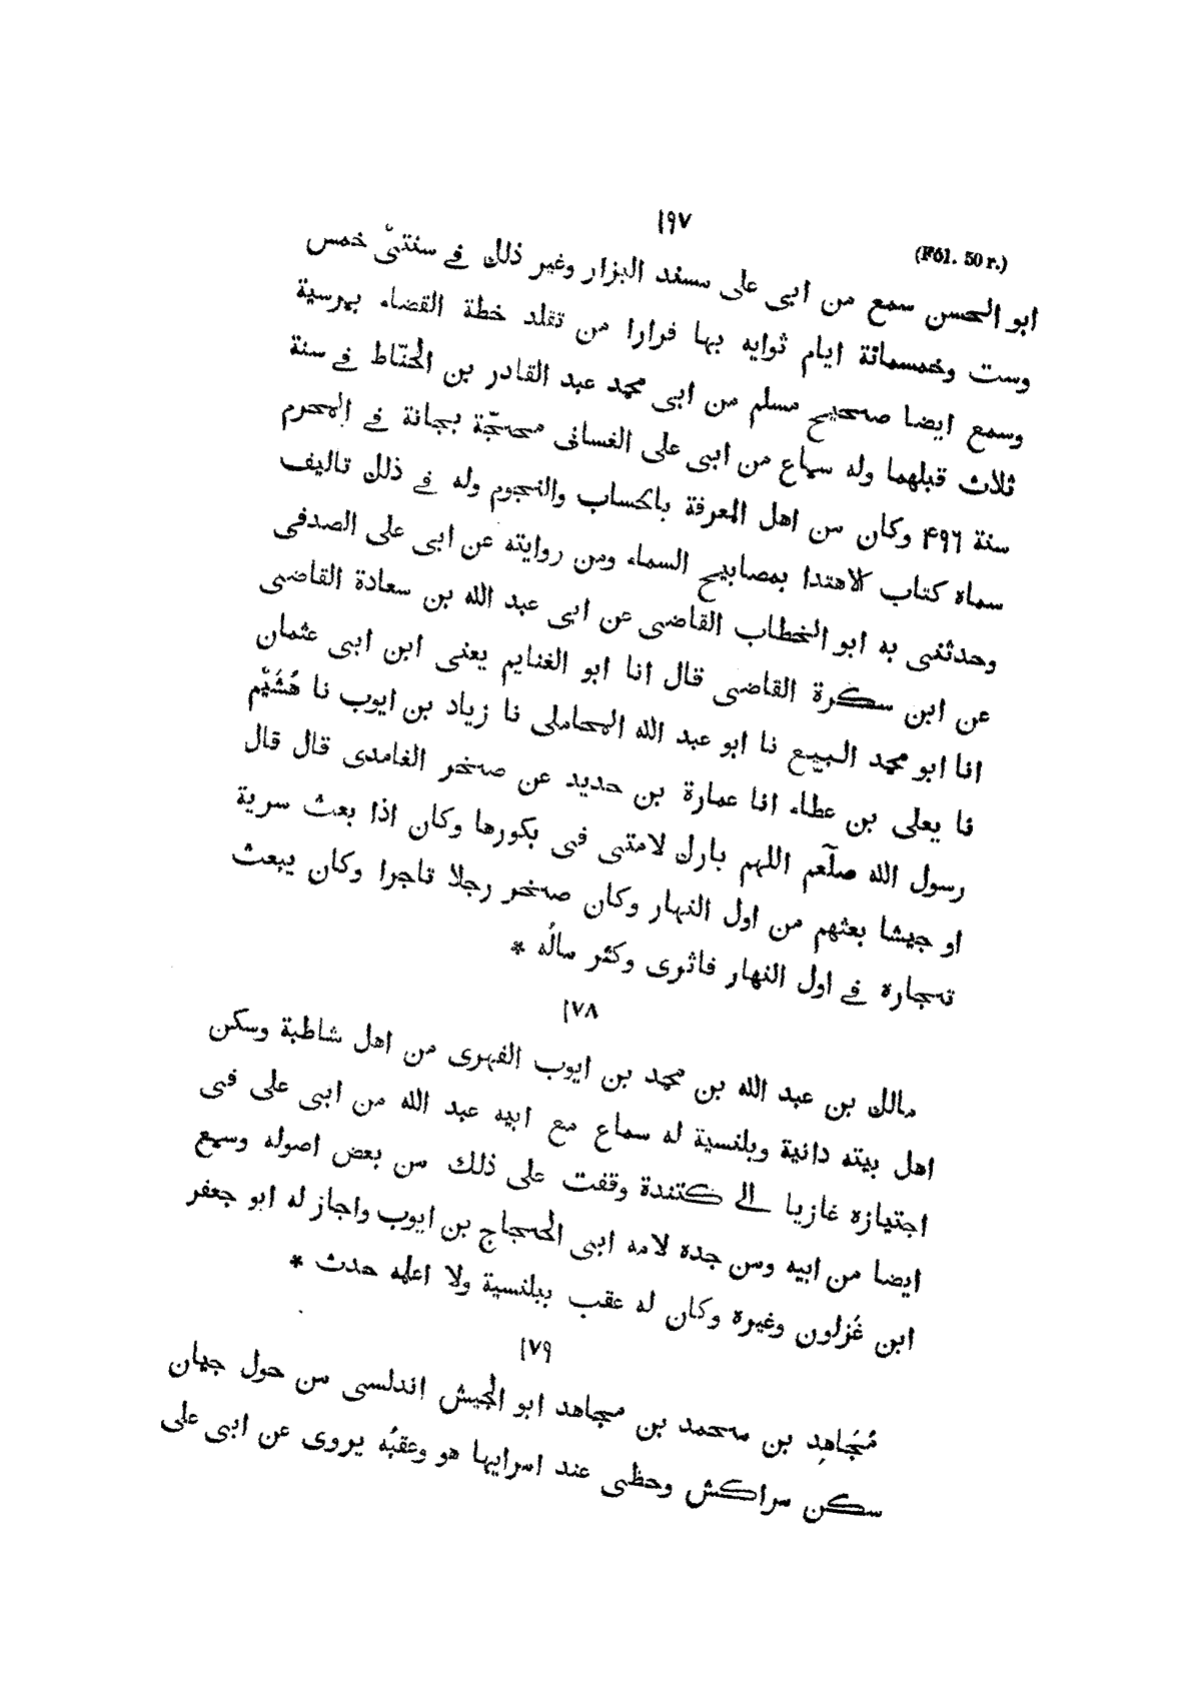 ١٩٧
(Fól. 50 r.)
ابو الحسن سمع من ابى على مسند البزار وغير ذلك فے سنتىْ خمس
وست وخمسمائة ايام ثوايه بها فرارا من تقلد خطة القضاء بمرسية
وسمع ايضا صحيح مسلم من ابى محمد عبد القادر بن الحنّاط فے سنة
ثلاث قبلهما وله سماع من ابى على الغسانى محجّة بجانة فے المحرم
سنة ۴٩٦ وكان من اهل المعرفة بالحساب والنجوم وله فے ذلك تاليف
سماه كتاب الاهتدا بمصابيح السماء ومن روايته عن ابى على الصدفى
وحدثنى به ابو الخطاب القاضى عن ابى عبد الله بن سعادة القاضى
عن ابن سكرة القاضى قال انا ابو الغنايم يعنى ابن ابى عثمان
انا ابو محمد البيع نا ابو عبد الله المحاملى نا زياد بن ايوب نا هُشَيْم
نا يعلى بن عطاء انا عمارة بن حديد عن صخر الغامدى قال قال
رسول الله صلّعم اللهم بارك لامتى فى بكورها وكان اذا بعث سرية
او جيشا بعثهم من اول النهار وكان صخر رجلا تاجرا وكان يبعث
تجاره فے اول النهار فاثرى وكثر مالُه *
١٧٨
مالك بن عبد الله بن محمد بن ايوب الفهرى من اهل شاطبة وسكن
اهل بيته دانية وبلنسية له سماع مع ابيه عبد الله من ابى على فى
اجتيازه غازيا الے كتندة وقفت على ذلك من بعض اصوله وسمع
ايضا من ابيه ومن جده لامه ابى الحجاج بن ايوب واجاز له ابو جعفر
ابن غُزلون وغيره وكان له عقب ببلنسية ولا اعلمه حدث *
١٧٩
مُجَاهِد بن محمد بن مجاهد ابو الجيش اندلسى من حول جيان
سكن مراكش وحظى عند امرايها هو وعقبُه يروى عن ابى على